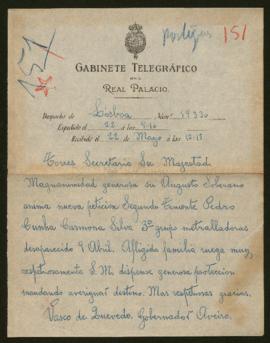 151
portugués 151
GABINETE TELEGRÁFICO
EN EL
REAL PALACIO.
Despacho de Lisboa Núm. 19330
Expedido el 22 á las 9-10
Recibido el 22 de Mayo á las 12-13.
Torres Secretario Su Majestad
Magnanimidad generosa su Augusto Soberano
anima nueva petición Segundo Teniente Pedro
Cunha Carmona Silva 3er grupo metralladoras
desaparecido 9 Abril. Afligida familia ruega muy
respetuosamente S.M. dispense generosa protección
mandando averiguar destino. Mas respetuosas gracias.
Vasco de Quevedo, Gobernador Aveiro.